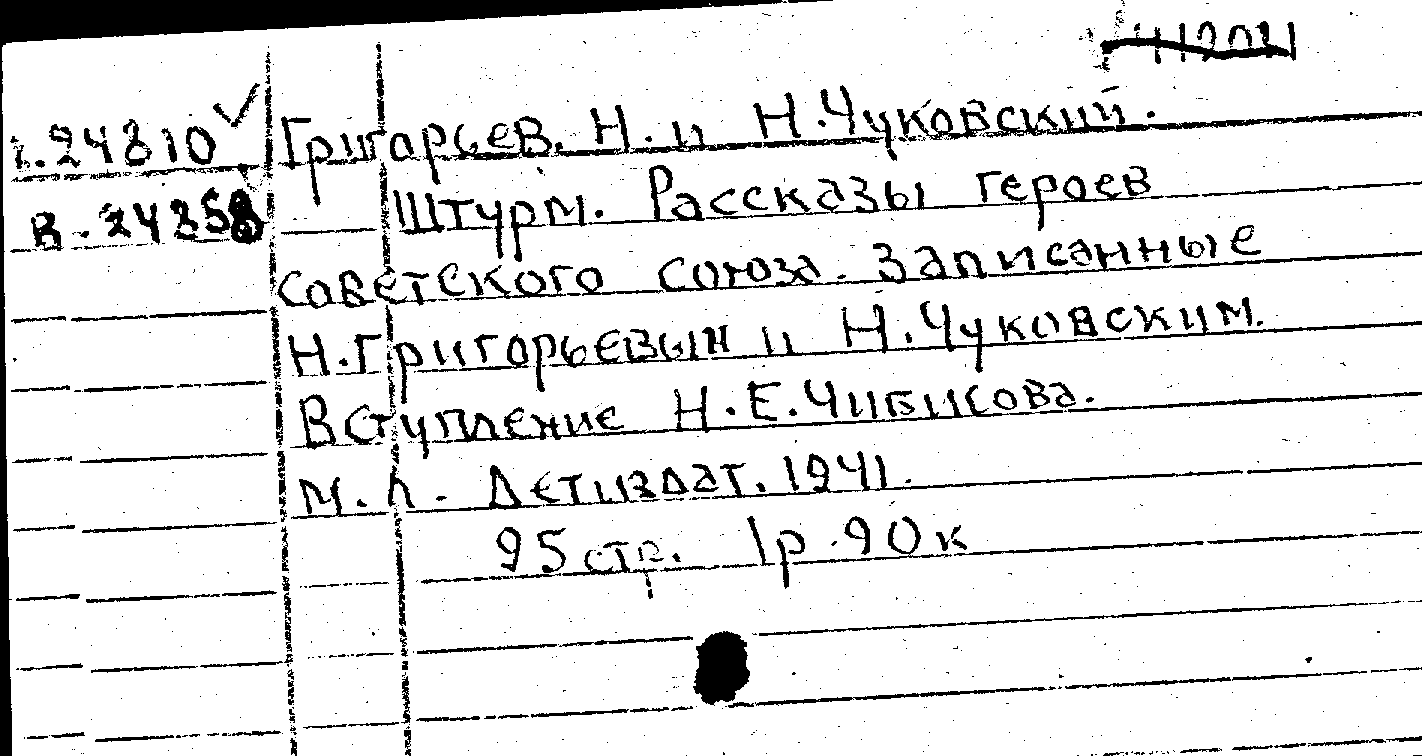 Григарьев. Н. и Н. Чуковский.
24810
Штурм. Рассказы героев
в. 24358
советского союза. Записанные
Н. Григорьевын и Н. Чуковским.
Вступление Н. Е. Чибисова.
М. Л. Детиздат. 1941.
95 стр. 1р. 90к